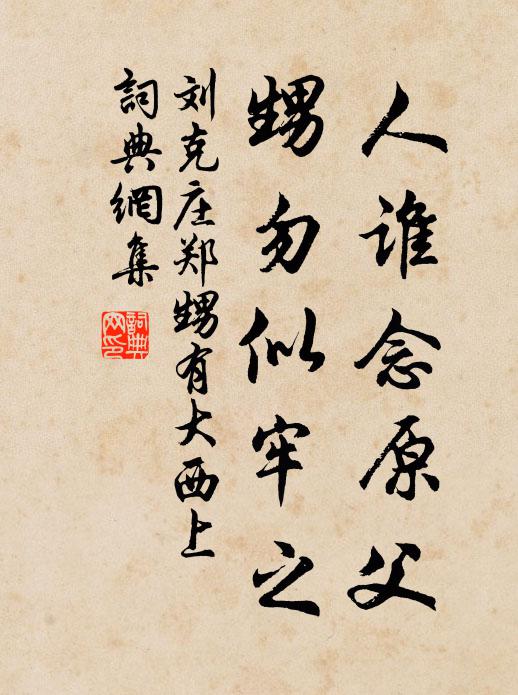 人谁念原父
甥勿似牢之
刘克庄郑甥有大西上
词典網集
詞典
网印